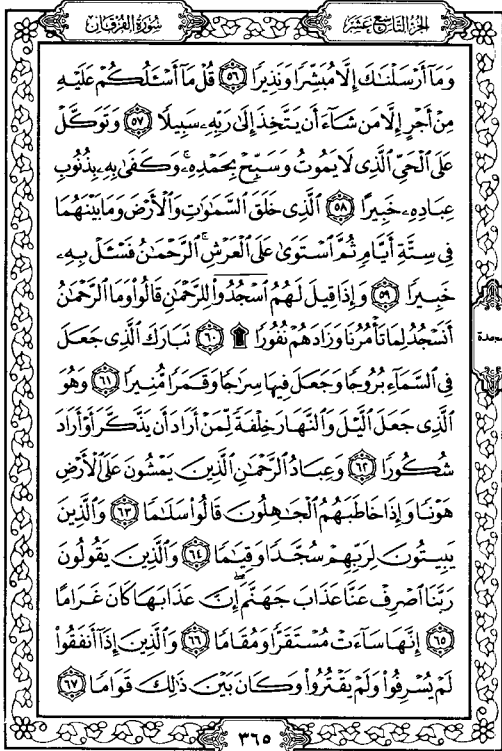 سُورَةُ الفُرْقَانِ
الجُزْءُ التَّاسِعَ عَشَرَ
وَمَآ أَرْسَلْنَٰكَ إِلَّا مُبَشِّرًا وَنَذِيرًا ٥٦ قُلْ مَآ أَسْـَٔلُكُمْ عَلَيْهِ
مِنْ أَجْرٍ إِلَّا مَن شَآءَ أَن يَتَّخِذَ إِلَىٰ رَبِّهِۦ سَبِيلًا ٥٧ وَتَوَكَّلْ
عَلَى ٱلْحَىِّ ٱلَّذِى لَا يَمُوتُ وَسَبِّحْ بِحَمْدِهِۦ ۚ وَكَفَىٰ بِهِۦ بِذُنُوبِ
عِبَادِهِۦ خَبِيرًا ٥٨ ٱلَّذِى خَلَقَ ٱلسَّمَٰوَٰتِ وَٱلْأَرْضَ وَمَا بَيْنَهُمَا
فِى سِتَّةِ أَيَّامٍ ثُمَّ ٱسْتَوَىٰ عَلَى ٱلْعَرْشِ ۚ ٱلرَّحْمَٰنُ فَسْـَٔلْ بِهِۦ
خَبِيرًا ٥٩ وَإِذَا قِيلَ لَهُمُ ٱسْجُدُوا۟ لِلرَّحْمَٰنِ قَالُوا۟ وَمَا ٱلرَّحْمَٰنُ
أَنَسْجُدُ لِمَا تَأْمُرُنَا وَزَادَهُمْ نُفُورًا ۩ ٦٠ تَبَارَكَ ٱلَّذِى جَعَلَ
سجدة
فِى ٱلسَّمَآءِ بُرُوجًا وَجَعَلَ فِيهَا سِرَٰجًا وَقَمَرًا مُّنِيرًا ٦١ وَهُوَ
ٱلَّذِى جَعَلَ ٱلَّيْلَ وَٱلنَّهَارَ خِلْفَةً لِّمَنْ أَرَادَ أَن يَذَّكَّرَ أَوْ أَرَادَ
شُكُورًا ٦٢ وَعِبَادُ ٱلرَّحْمَٰنِ ٱلَّذِينَ يَمْشُونَ عَلَى ٱلْأَرْضِ
هَوْنًا وَإِذَا خَاطَبَهُمُ ٱلْجَٰهِلُونَ قَالُوا۟ سَلَٰمًا ٦٣ وَٱلَّذِينَ
يَبِيتُونَ لِرَبِّهِمْ سُجَّدًا وَقِيَٰمًا ٦٤ وَٱلَّذِينَ يَقُولُونَ
رَبَّنَا ٱصْرِفْ عَنَّا عَذَابَ جَهَنَّمَ ۖ إِنَّ عَذَابَهَا كَانَ غَرَامًا
٦٥ إِنَّهَا سَآءَتْ مُسْتَقَرًّا وَمُقَامًا ٦٦ وَٱلَّذِينَ إِذَآ أَنفَقُوا۟
لَمْ يُسْرِفُوا۟ وَلَمْ يَقْتُرُوا۟ وَكَانَ بَيْنَ ذَٰلِكَ قَوَامًا ٦٧
٣٦٥